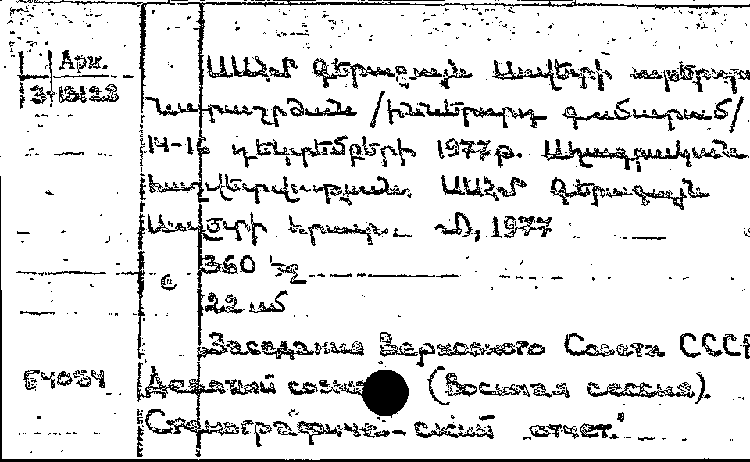 Арм.
3-13123
ՍՍՀՄ Գերագույն Սովետի
/իններորդ գումարում/
14-16 դեկտեմբերի 1977թ.
ՍՍՀՄ Գերագույն
Սովետի հրատ. Մ., 1977
360 էջ
22 սմ
Заседания Верховного Совета СССР
Е4054 Девятый созыв (Восьмая сессия).
Стенографиче- ский отчет.